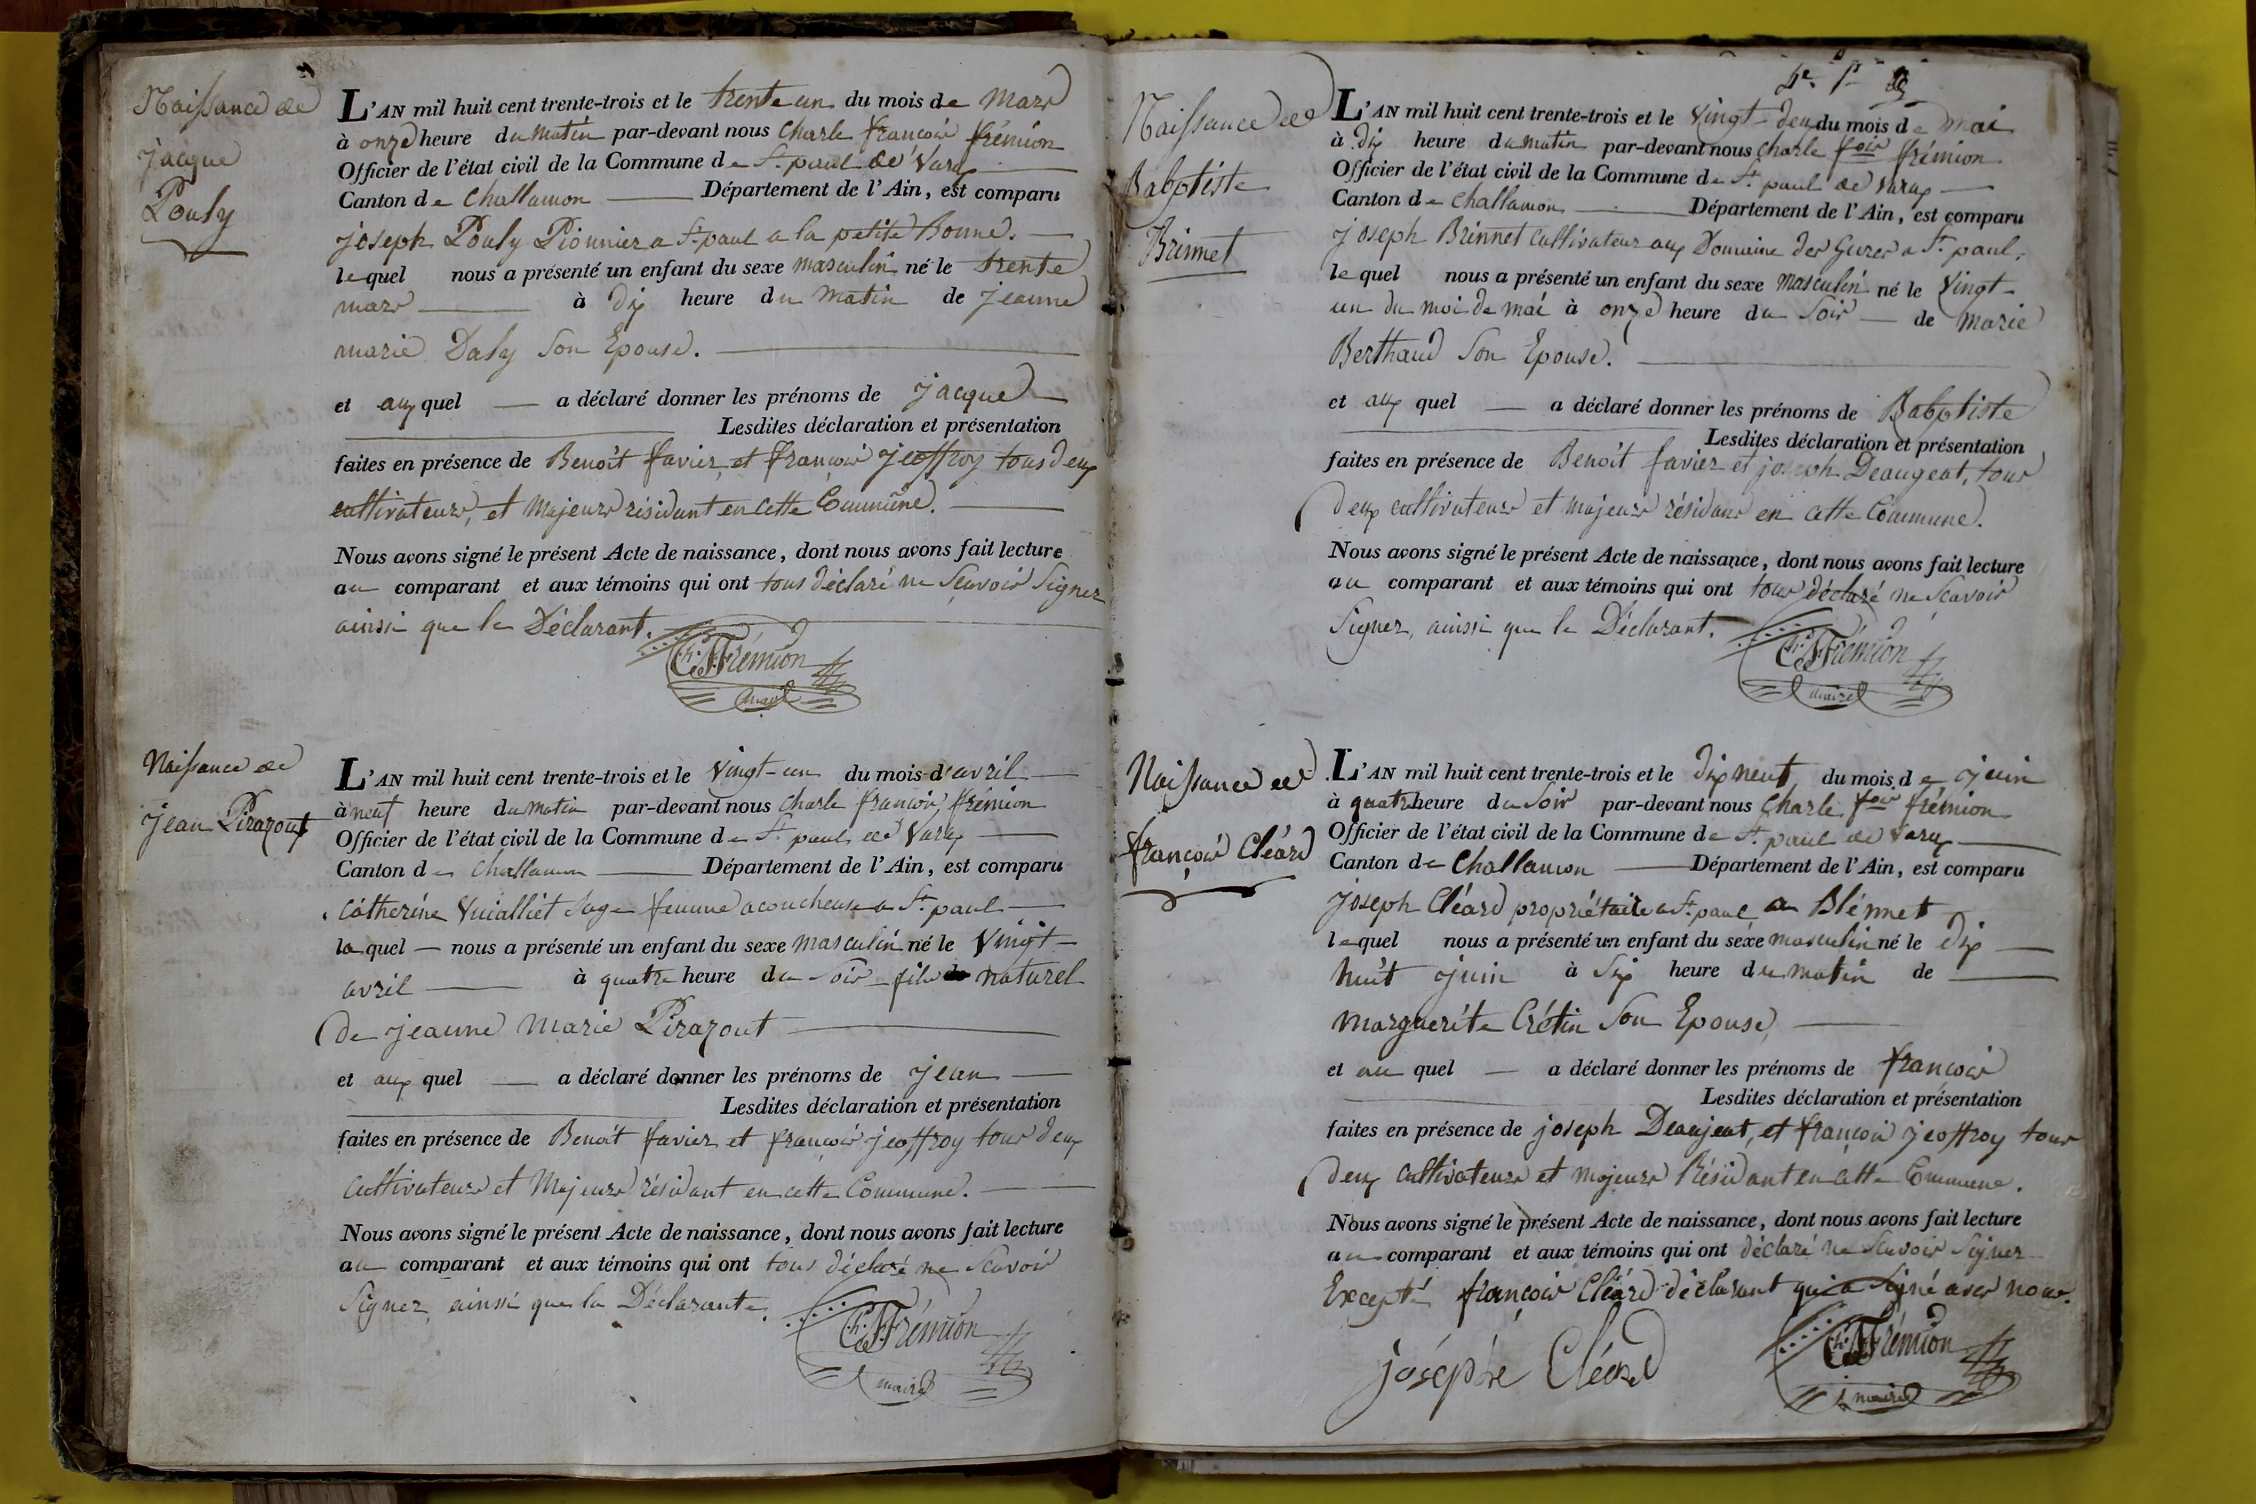 Naissance de
jacque
Pouly
L'AN mil huit cent trente-trois et le trente un du mois de mars
à onze heure du matin par-devant nous Charle françois frémion
Officier de l'état civil de la Commune de St. paul de Varax
Canton de Challamon Département de l'Ain, est comparu
joseph Pouly Pionnier a St. paul a la petite Bonne.
lequel nous a présenté un enfant du sexe masculin né le trente
mars à dix heure du matin de jeanne
marie Daly son Epouse.
et auxquel a déclaré donner les prénoms de jacque
Lesdites déclaration et présentation
faites en présence de Benoît favier et françois jeoffroy tous deux
cultivateurs, et majeurs résidant en cette Commune.
Nous avons signé le présent Acte de naissance, dont nous avons fait lecture
au comparant et aux témoins qui ont tous déclaré ne Scavoir Signer
ainsi que le Déclarant.
Ch. F. Frémion
maire
Naissance de
jean Pirazout
L'AN mil huit cent trente-trois et le vingt-un du mois d'avril
à neuf heure du matin par-devant nous Charle françois frémion
Officier de l'état civil de la Commune de St. paul de Varax
Canton de Challamon Département de l'Ain, est comparu
Cátherine Vuialliet Sage femme acoucheuse a St. paul
laquel nous a présenté un enfant du sexe masculin né le vingt
avril à quatre heure du soir fils naturel
de jeanne Marie Pirazout
et auxquel a déclaré donner les prénoms de jean
Lesdites déclaration et présentation
faites en présence de Benoît favier et françois jeoffroy tous deux
cultivateurs et Majeurs résidant en cette Commune.
Nous avons signé le présent Acte de naissance, dont nous avons fait lecture
au comparant et aux témoins qui ont tous déclaré ne Scavoir
Signer ainssi que la Déclarante.
Ch. F. Frémion
maire
Naissance de
Baptiste
Brinnet
L'AN mil huit cent trente-trois et le vingt-deux du mois de mai
à dix heure du matin par-devant nous Charle fois frémion
Officier de l'état civil de la Commune de St. paul de Varax
Canton de Challamon Département de l'Ain, est comparu
joseph Brinnet cultivateur aux Domaine des Gures a St. paul,
lequel nous a présenté un enfant du sexe masculin né le vingt-
un du moi de mai à onze heure du Soir de marie
Berthaud Son Epouse.
et aux quel a déclaré donner les prénoms de Baptiste
Lesdites déclaration et présentation
faites en présence de Benoît favier et joseph Deaugeat, tous
deux cultivateurs et majeurs résidans en cette Commune.
Nous avons signé le présent Acte de naissance, dont nous avons fait lecture
au comparant et aux témoins qui ont tous déclaré ne Scavoir
Signer, ainssi que le Déclarant.
Ch. F. Frémion
maire
Naissance de
françois Cléard
L'AN mil huit cent trente-trois et le dix neuf du mois de juin
à quatrheure du Soir par-devant nous Charle fois frémion
Officier de l'état civil de la Commune de St. paul de Varax
Canton de Challamon Département de l'Ain, est comparu
joseph Cléard propriétaire a St. paul a Blémet
lequel nous a présenté un enfant du sexe masculin né le dix
huit juin à Six heure du matin de
Marguerite Crétin Son Epouse,
et au quel a déclaré donner les prénoms de françois
Lesdites déclaration et présentation
faites en présence de joseph Deaujeat, et françois jeoffroy tous
deux cultivateurs et majeurs Résidant en cette Commune.
Nous avons signé le présent Acte de naissance, dont nous avons fait lecture
au comparant et aux témoins qui ont déclaré ne Scavoir Signer
Excepté françois Cléard déclarant qui a Signé avec nous.
joséphe Cléard
Ch. F. Frémion
maire